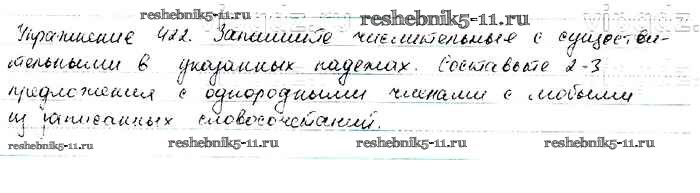 reshebnik5-11.ru
reshebnik5-11.ru
Упражнение 422. Запишите числительные с существи-
тельными в указанных падежах. Составьте 2-3
предложения с однородными членами с любыми
из записанных словосочетаний.
reshebnik5-11.ru
reshebnik5-11.ru
reshebnik5-11.ru